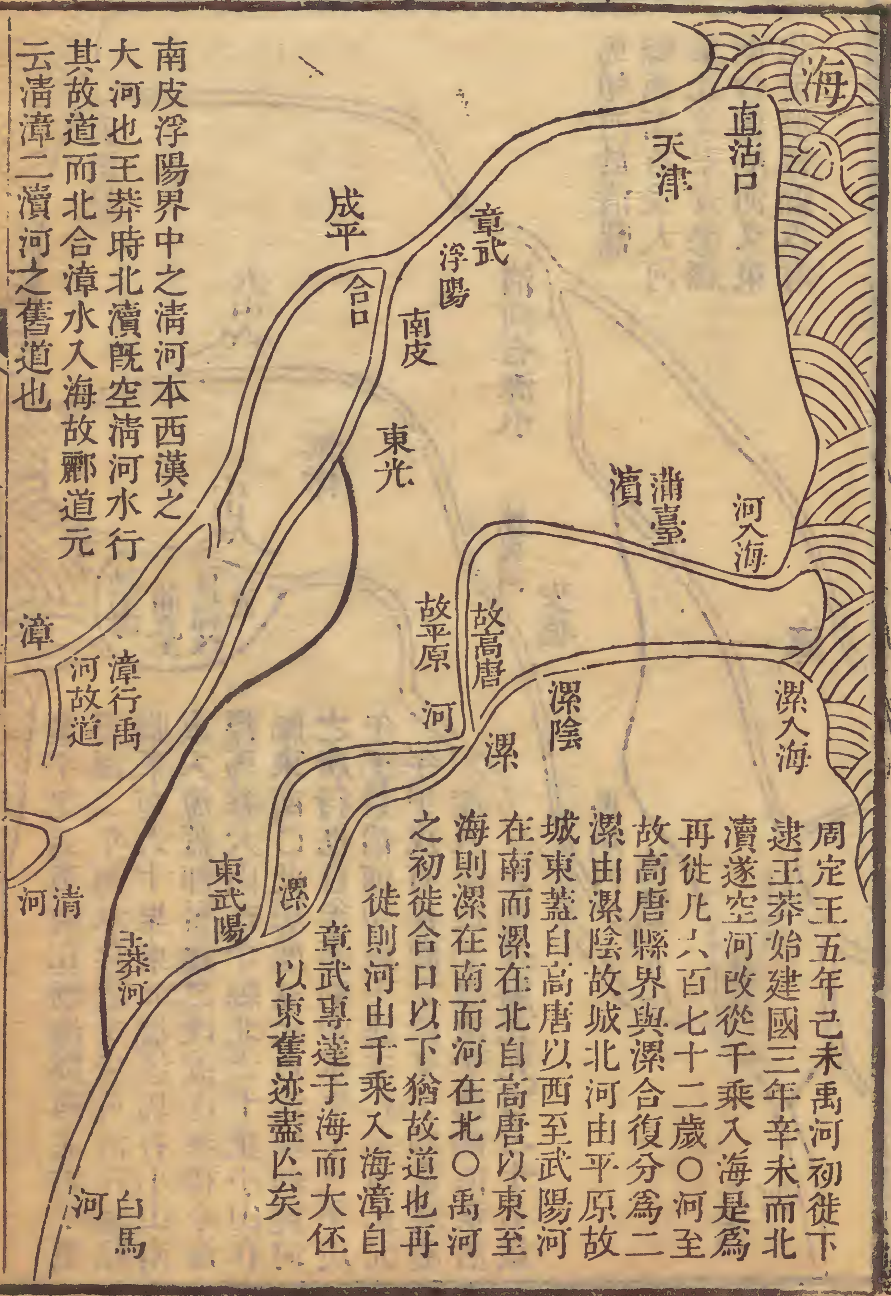 海
直沽口
天津
章武
浮陽
南皮
成平
合口
東光
蒲臺
濱
河入海
故高唐
故平原
河
漯
漯陰
漯入海
漳
漳行禹
河故道
清
河
東武陽
漯
王莽河
白馬
河
周定王五年己未禹河初徙下
逮王莽始建國三年辛未而北
瀆遂空河改從千乘入海是爲
再徙凡六百七十二歲○河至
故高唐縣界與漯合復分爲二
漯由漯陰故城北河由平原故
城東蓋自高唐以西至武陽河
在南而漯在北自高唐以東至
海則漯在南而河在北○禹河
之初徙合口以下猶故道也再
徙則河由千乘入海漳自
章武專達于海而大伾
以東舊迹盡亾矣
南皮浮陽界中之清河本西漢之
大河也王莽時北瀆旣空清河水行
其故道而北合漳水入海故酈道元
云清漳二瀆河之舊道也